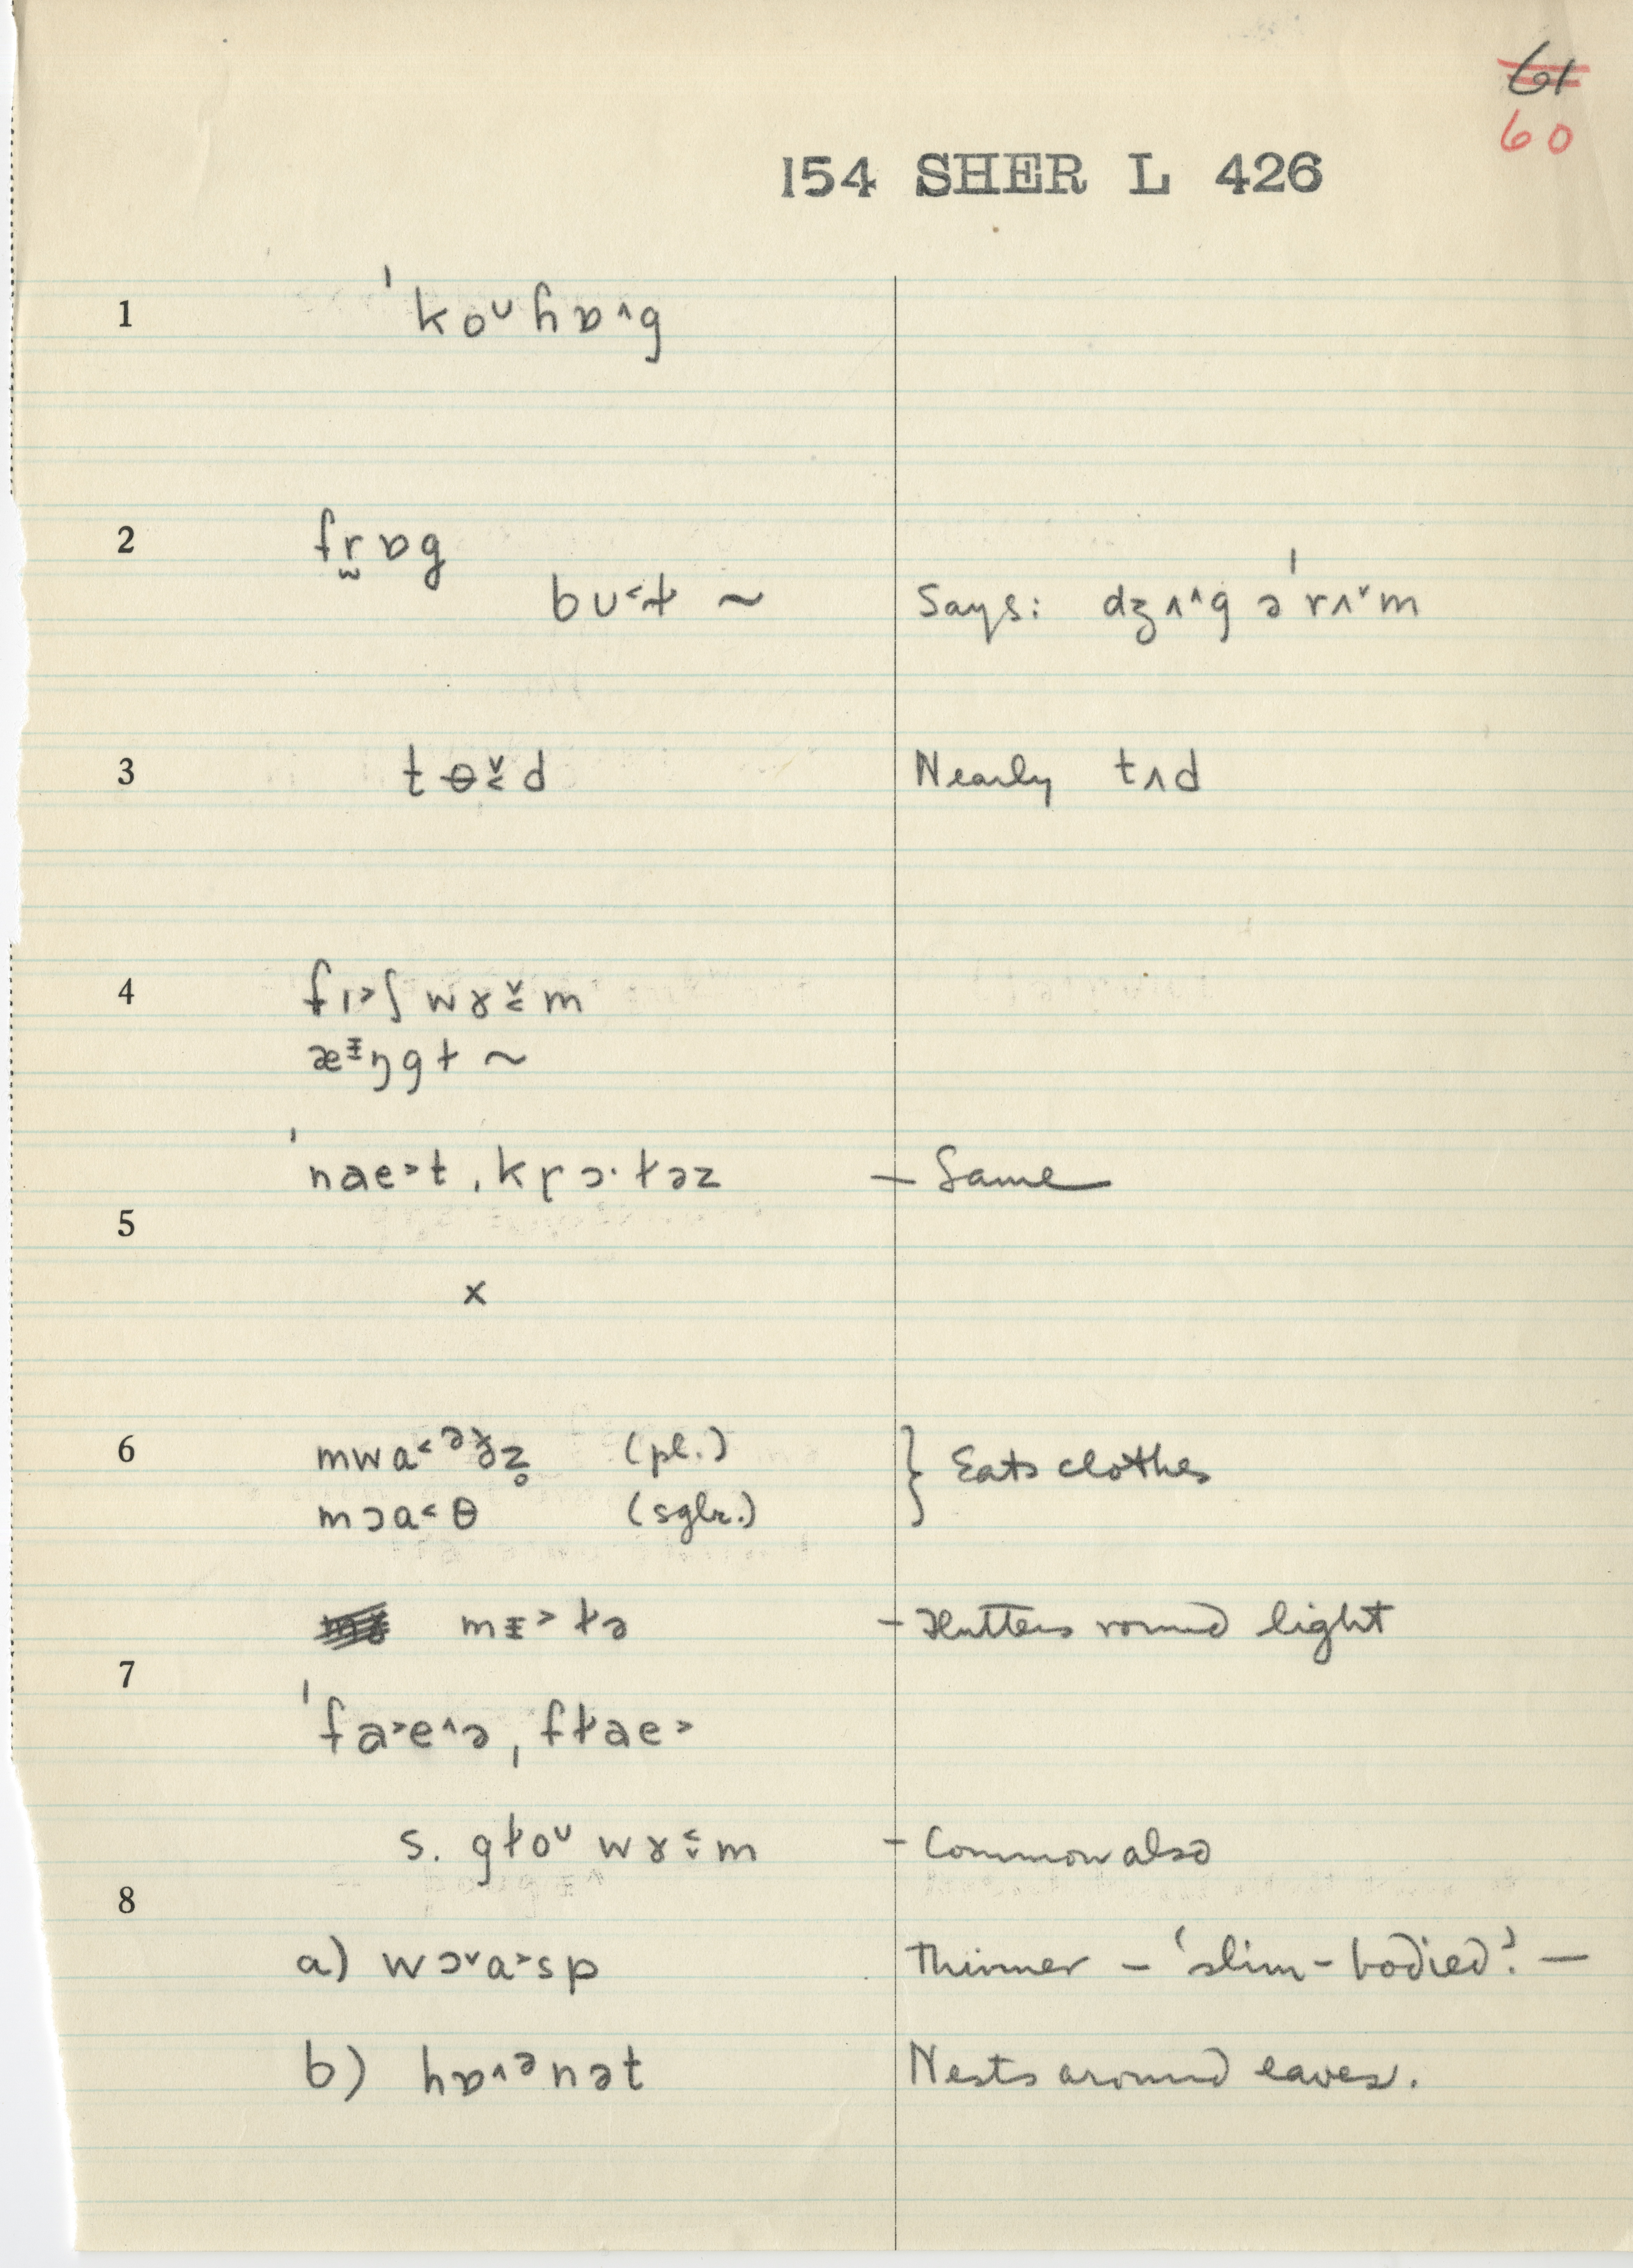 61
60
154 SHER L 426
1 ˈkoᶷɦɒ˄g
2 fr̫ɒg
bʊ˂ɫ ~ Says: dʒʌ˄g əˈrʌ˅m
3 t ɵ˅˂d Nearly tʌd
4 fɪ˃ʃ wɤ˅˂m
æᵻŋgɫ ~
ˈnae˃t ˌkr̥ɔ·ɫəz – Same
5
x
6 mwa˂ᵊðz̥ (pl.) } Eats clothes
mɔa˂θ (sglr.)
mɪ˃ɫə – Flutters round light
7
ˈfa˃e˄ə ˌfɫae˃
s. gɫoᶷ wɤ˂˅m – Common also
8
a) wɔ˅a˃sp Thinner – 'slim-bodied'. –
b) hɒ˄ᵊnət Nests around eaves.